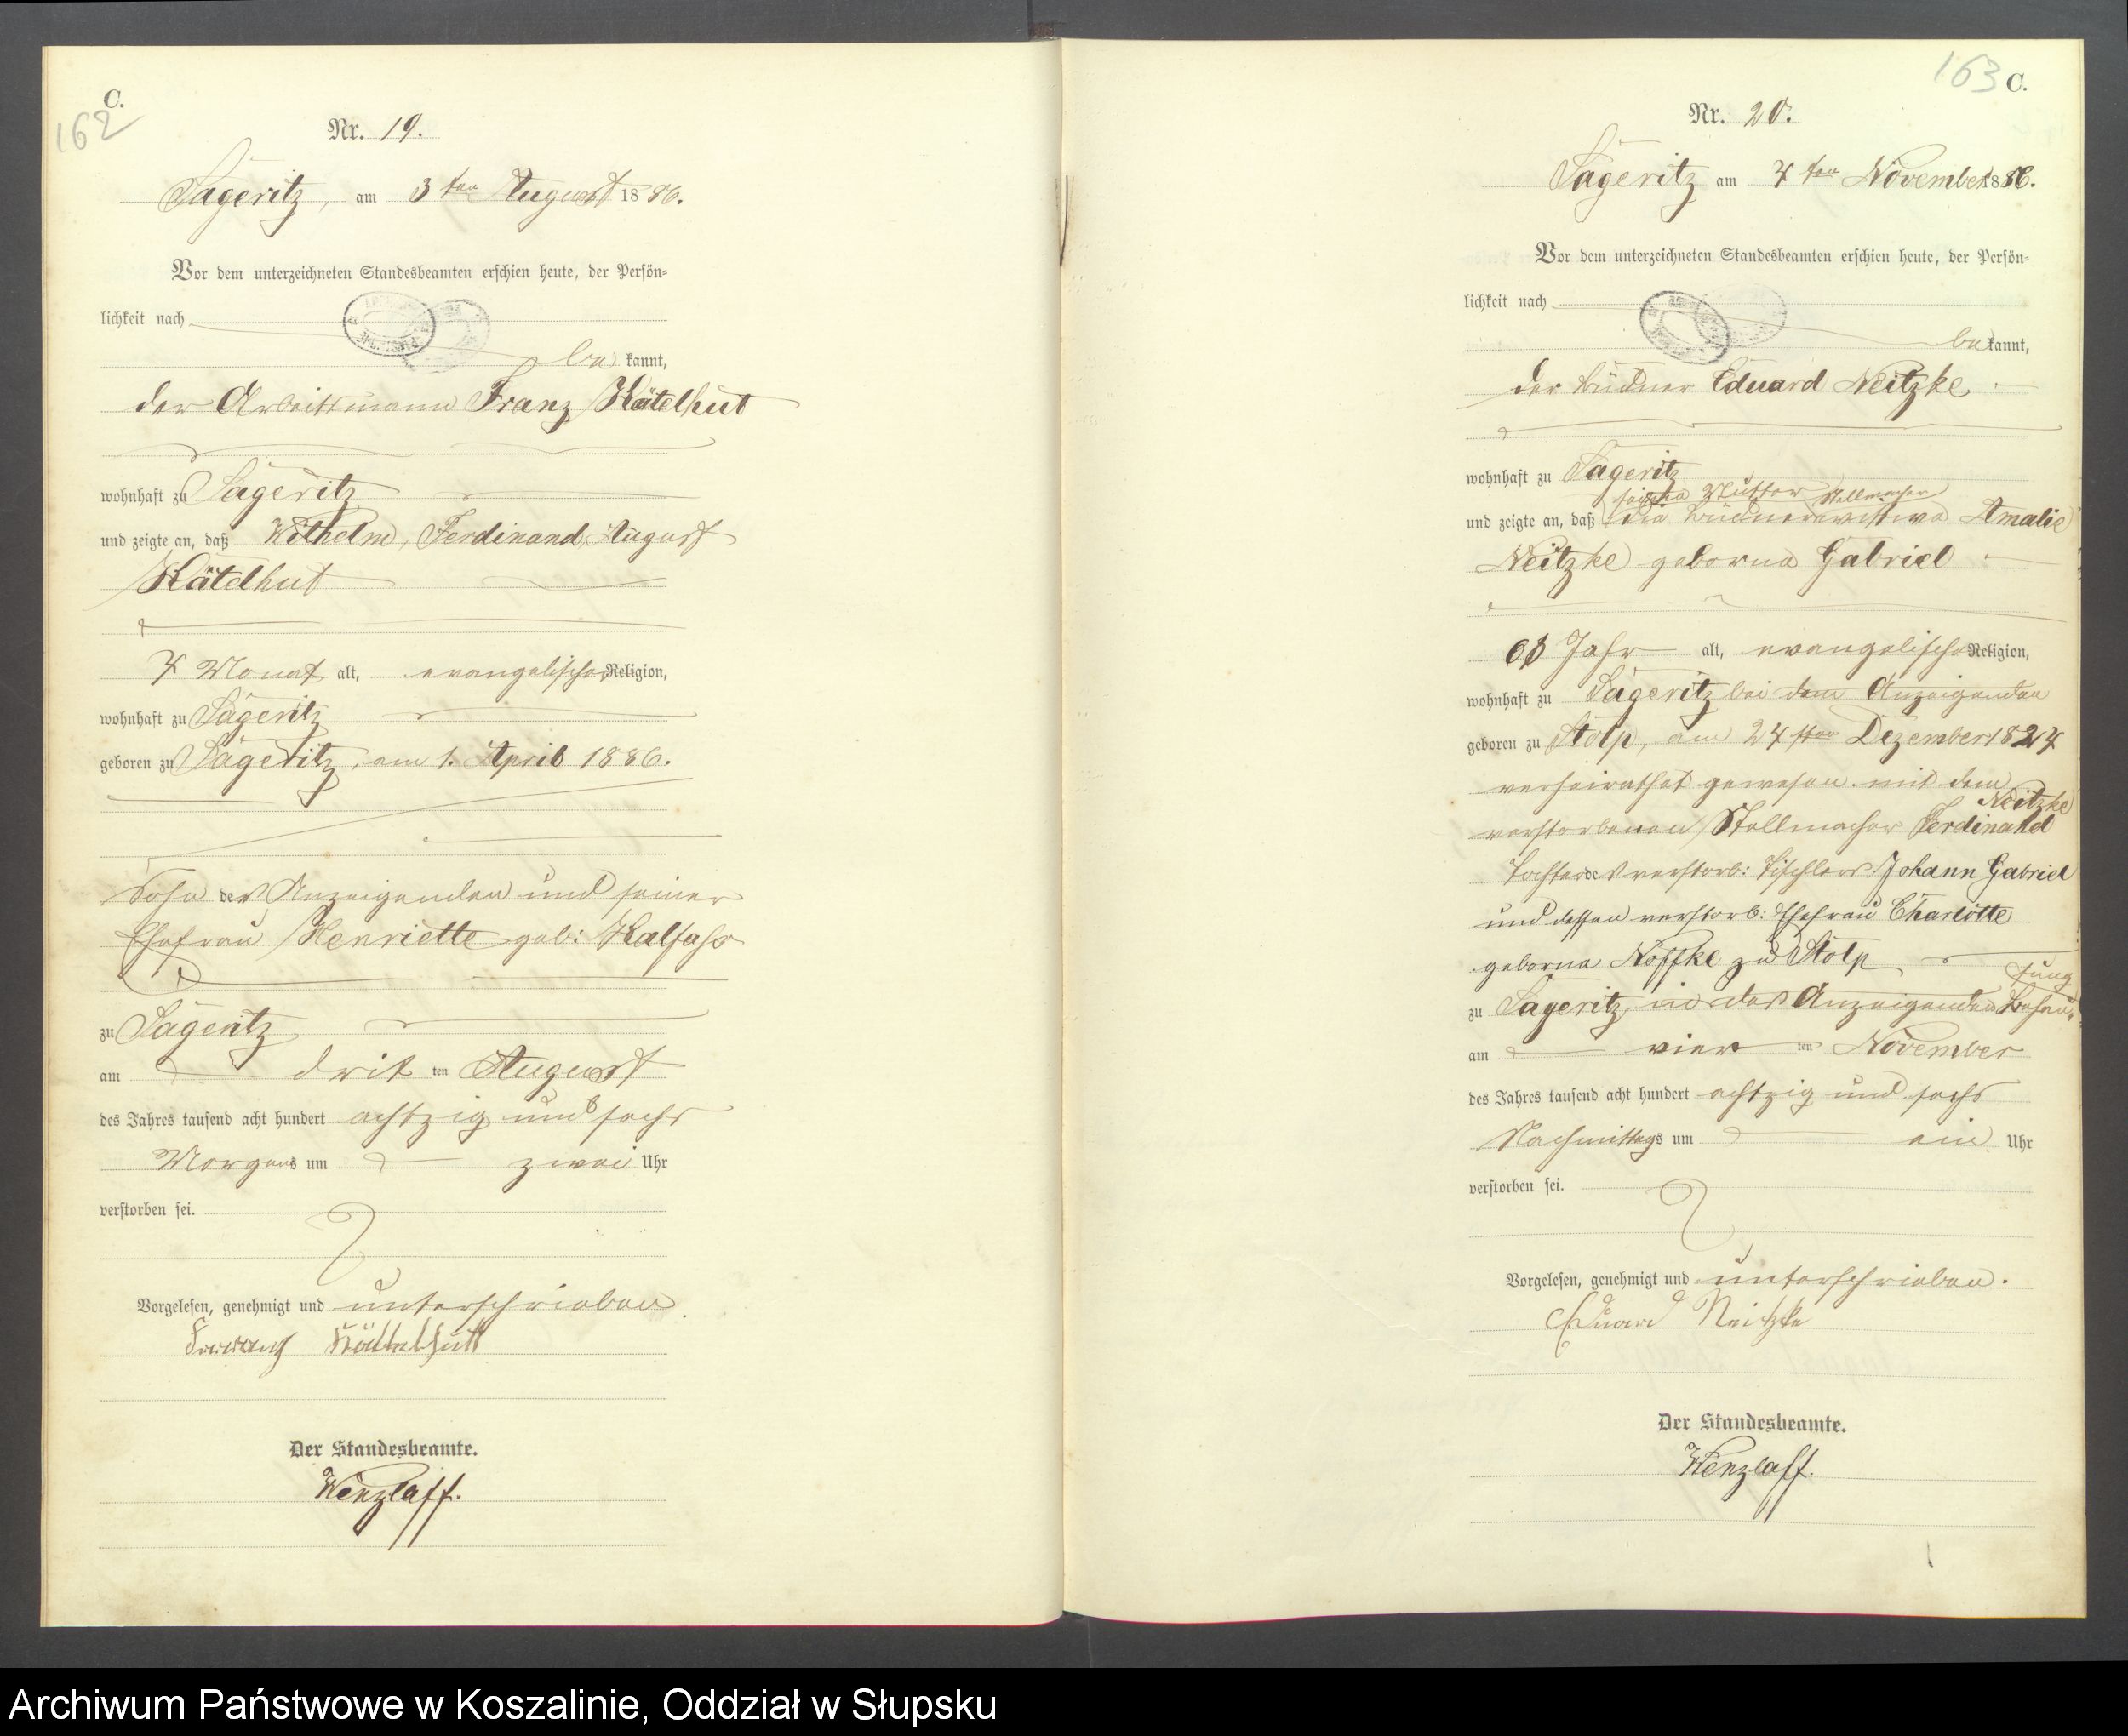 C.
162
Nr. 19.
Sageritz, am 3ten August 1886.
Vor dem unterzeichneten Standesbeamten erschien heute, der Persön-
lichkeit nach
be kannt,
der Arbeitsmann Franz Kätelhut
wohnhaft zu Sageritz
und zeigte an, daß Wilhelm, Ferdinand, August
Kätelhut
4 Monat alt, evangelischer Religion,
wohnhaft zu Sageritz
geboren zu Sageritz, am 1. April 1886.
Sohn des Anzeigenden und seiner
Ehefrau Henriette geb: Kalfahs
zu Sageritz
am drit ten August
des Jahres tausend acht hundert achtzig und sechs
Morgens um zwei Uhr
verstorben sei.
Vorgelesen, genehmigt und unterschrieben
Frrranz Kättelhutt
Der Standesbeamte.
Wenzlaff.
163 C.
Nr. 20.
Sageritz am 4ten November 1886.
Vor dem unterzeichneten Standesbeamten erschien heute, der Persön-
lichkeit nach
be kannt,
der Büdner Eduard Neitzke
wohnhaft zu Sageritz
seine Mutter Stellmacher
und zeigte an, daß die Büdnerwittwe Amalie
Neitzke geborne Gabriel
63 Jahr alt, evangelischer Religion,
wohnhaft zu Sageritz bei dem Anzeigenden
geboren zu Stolp, am 24sten Dezember 1824
verheirathet gewesen mit dem
Neitzke
verstorbenen Stellmacher Ferdinand
Tochter des verstorb: Tischlers Johann Gabriel
und dessen verstorb: Ehefrau Charlotte
geborne Noffke zu Stolp
sung
zu Sageritz, in des Anzeigenden Behau-
am vier ten November
des Jahres tausend acht hundert achtzig und sechs
Nachmittags um ein Uhr
verstorben sei.
Vorgelesen, genehmigt und unterschrieben.
Eduard Neitzke
Der Standesbeamte.
Wenzlaff.
Archiwum Państwowe w Koszalinie, Oddział w Słupsku